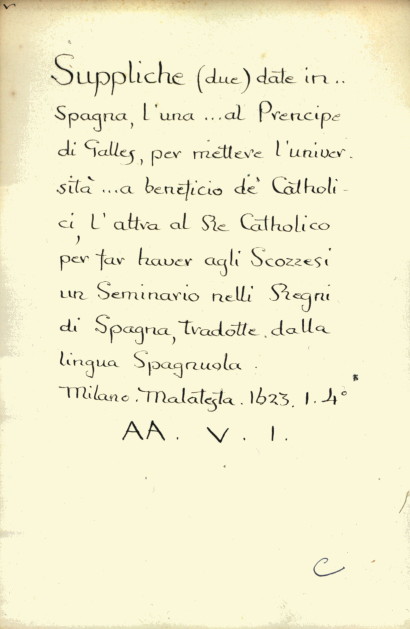 Suppliche (due) date in..
Spagna, l'una ...al Prencipe
di Galles, per mettere l'univer-
sità ...a beneficio de' Catholi-
ci, l'altra al Re Catholico
per far haver agli Scozzesi
un Seminario nelli Regni
di Spagna, tradotte dalla
lingua Spagnuola.
Milano. Malatesta. 1623. 1. 4°
AA. V. 1.
C